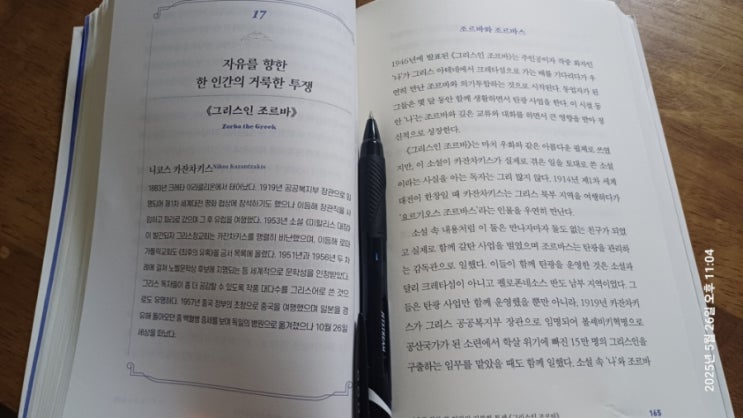 17
자유를 향한
한 인간의 거룩한 투쟁
《그리스인 조르바》
Zorba the Greek
니코스 카잔차키스 Nikos Kazantzakis
1883년 크레타 이라클리온에서 태어났다. 1919년 공공복지부 장관으로 임
명되며 제1차 세계대전 평화 협상에 참석하기도 했으나 이듬해 장관직을 사
임하고 파리로 갔으며 그 후 유럽을 여행했다. 1953년 소설 《미할리스 대장》
이 발간되자 그리스정교회는 카잔차키스를 맹렬히 비난했으며, 이듬해 로마
가톨릭교회도 《최후의 유혹》을 금서 목록에 올렸다. 1951년과 1956년 두 차
례에 걸쳐 노벨문학상 후보에 지명되는 등 세계적으로 문학성을 인정받았다.
그리스 독자들이 좀 더 공감할 수 있도록 작품 대다수를 그리스어로 쓴 것으
로도 유명하다. 1957년 중국 정부의 초청으로 중국을 여행했으며 일본을 경
유해 돌아오던 중 백혈병 증세를 보여 독일의 병원으로 옮겨졌으나 10월 26일
세상을 떠났다.
조르바와 조르바스
1946년에 발표된 《그리스인 조르바》는 주인공이자 작중 화자인
'나'가 그리스 아테네에서 크레타섬으로 가는 배를 기다리다가 우
연히 만난 조르바와 의기투합하는 것으로 시작된다. 동업자가 된
그들은 몇 달 동안 함께 생활하면서 탄광 사업을 한다. 이 시절 동
안 '나'는 조르바와 깊은 교류와 대화를 하면서 큰 영향을 받아 정
신적으로 성장한다.
《그리스인 조르바》는 마치 우화와 같은 아름다운 필체로 쓰였
지만, 이 소설이 카잔차키스가 실제로 겪은 일을 토대로 쓴 소설
이라는 사실을 아는 독자는 그리 많지 않다. 1914년 제1차 세계
대전이 한창일 때 카잔차키스는 그리스 북부 지역을 여행하다가
'요르기오스 조르바스'라는 인물을 우연히 만난다.
소설 속 내용처럼 이 둘은 만나자마자 둘도 없는 친구가 되었
고 실제로 함께 갈탄 사업을 벌였으며 조르바스는 탄광을 관리하
는 감독관으로 일했다. 이들이 함께 탄광을 운영한 것은 소설과
달리 크레타섬이 아니고 펠로폰네소스 반도 남부 지역이었다. 그
들은 탄광 사업만 함께 운영했을 뿐만 아니라, 1919년 카잔차키
스가 그리스 공공복지부 장관으로 임명되어 볼셰비키혁명으로
공산국가가 된 소련에서 학살 위기에 빠진 15만 명의 그리스인을
구출하는 임무를 맡았을 때도 함께 일했다. 소설 속 '나'와 조르바
165
2025년 5월 26일 오후 11:04